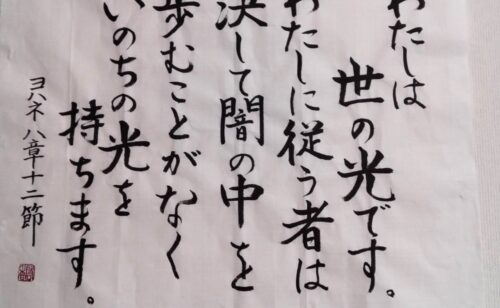 わたしは
世の光です。
わたしに従う者は
決して闇の中を
歩むことがなく
いのちの光を
持ちます。
ヨハネ八章十二節